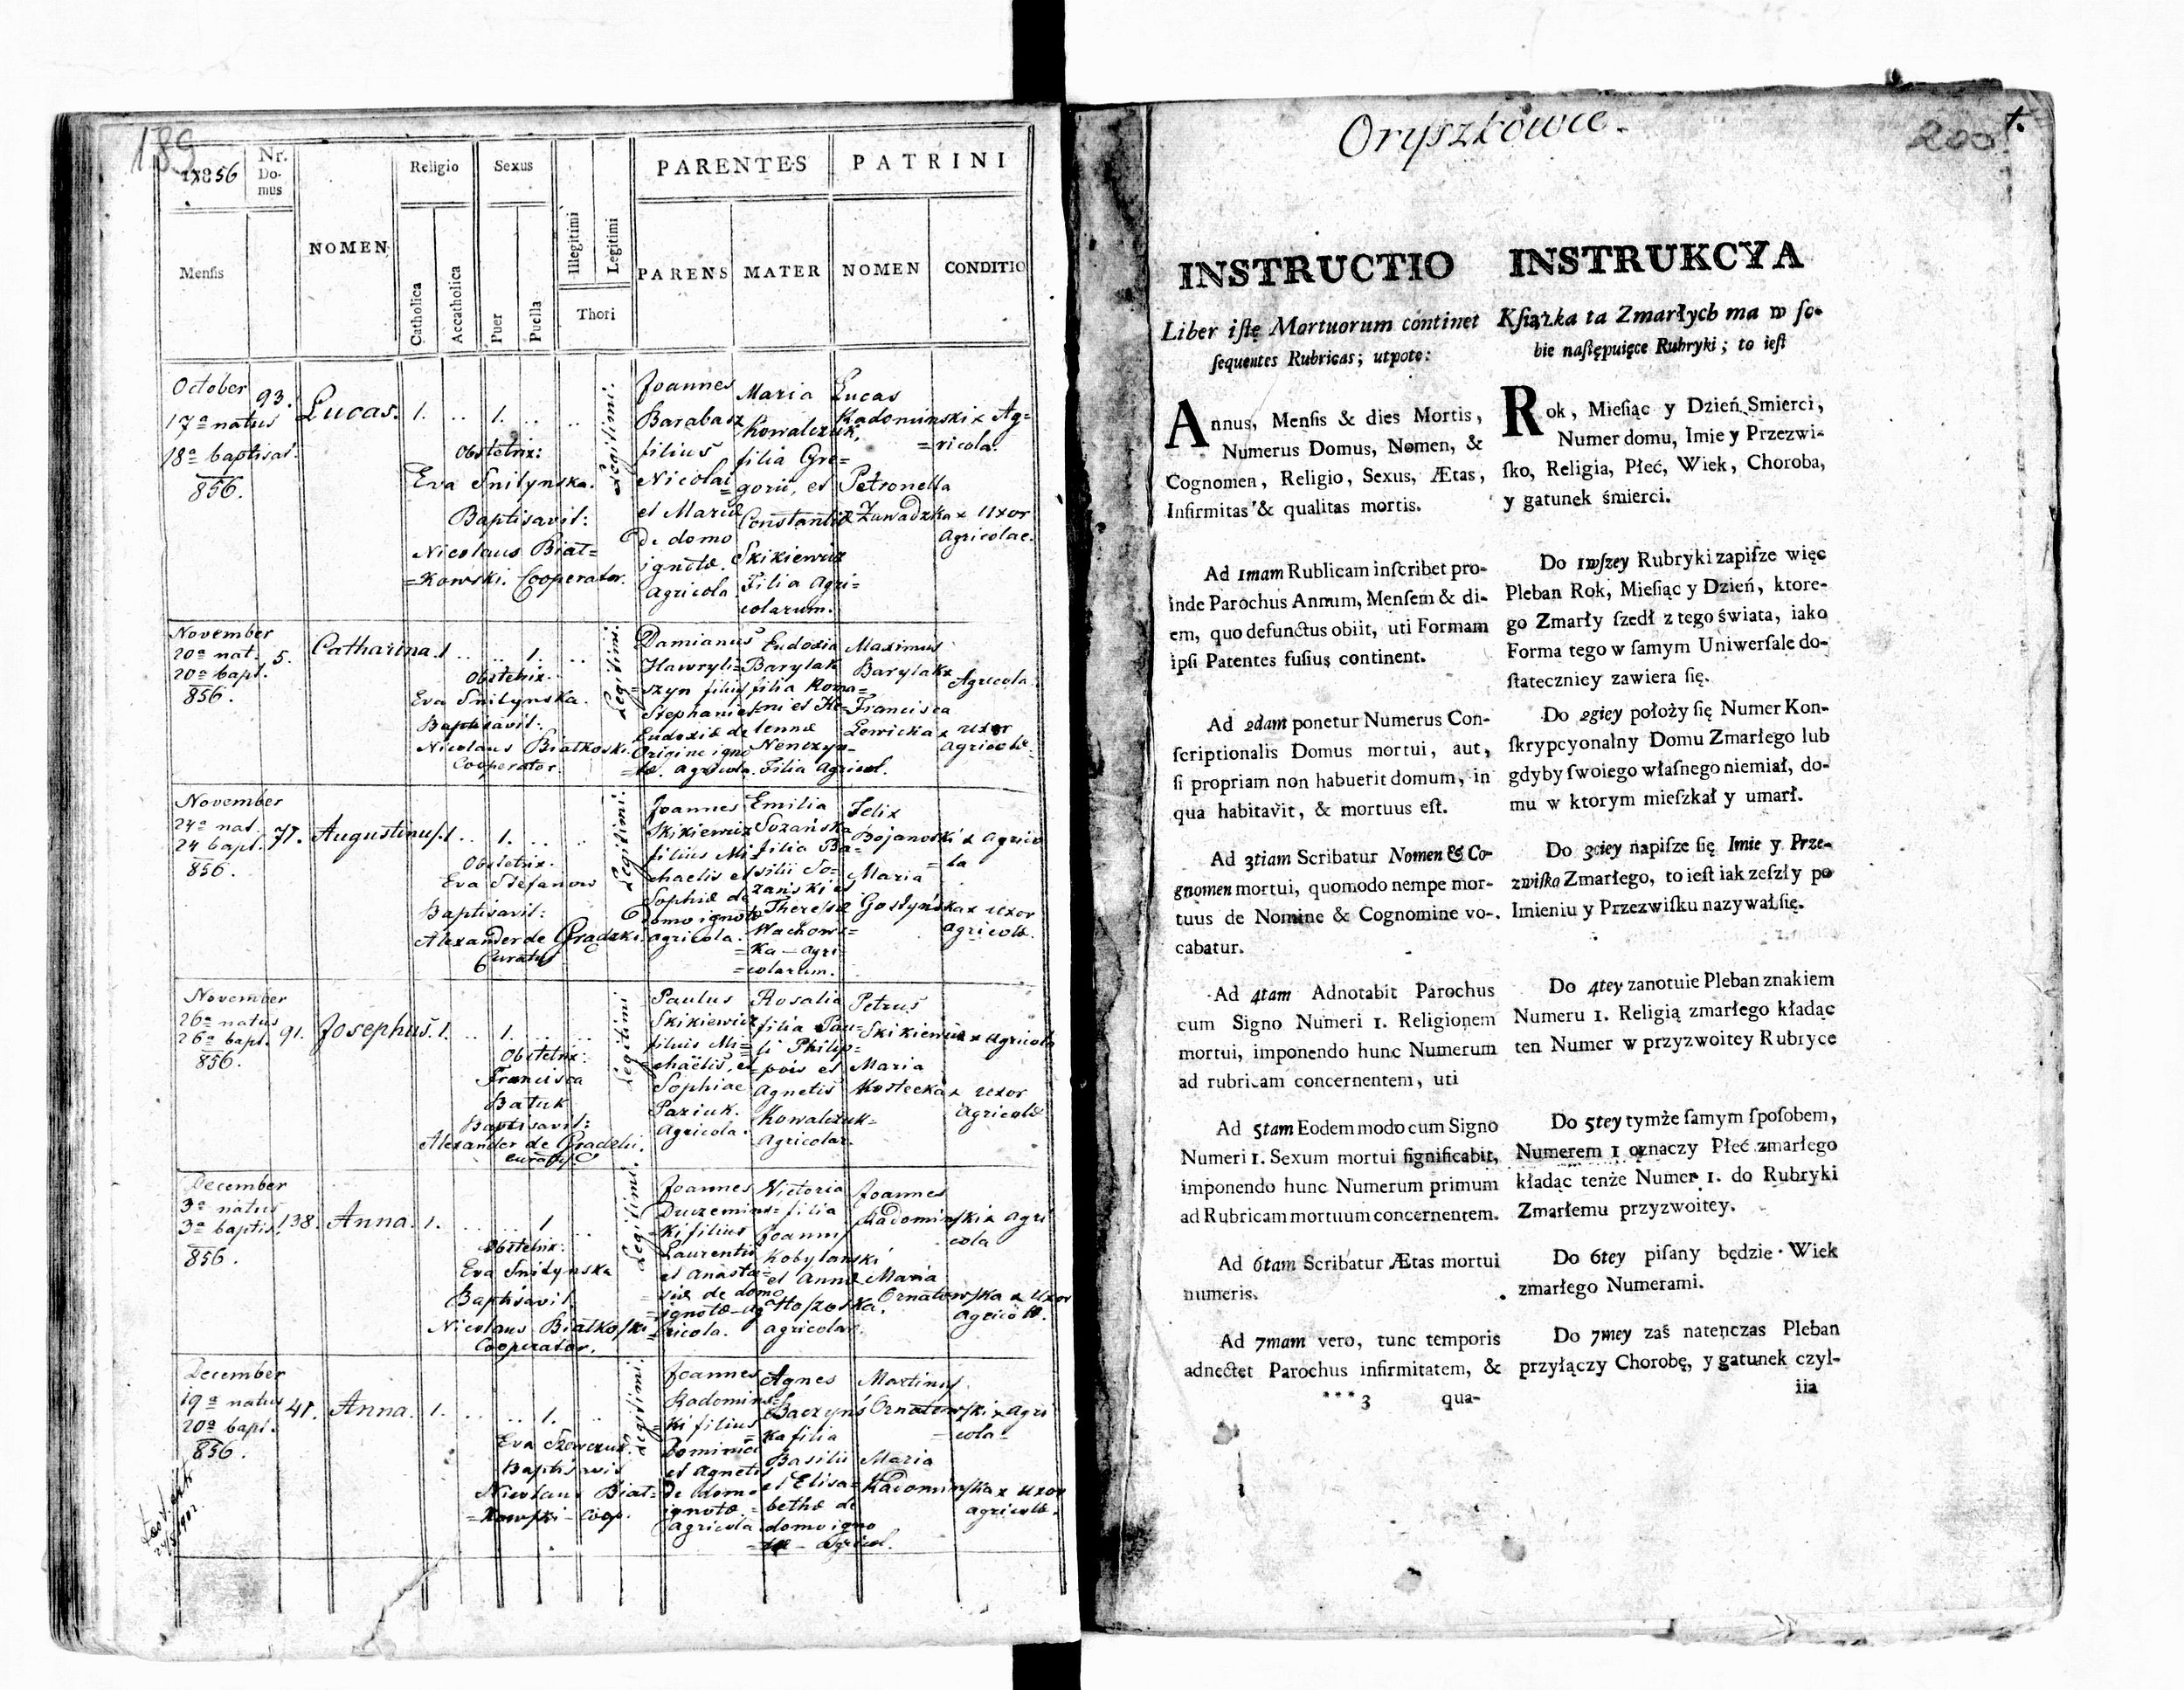 189
1856
Nr. Domus
NOMEN
Religio
Sexus
PARENTES
PATRINI
Mensis
Catholica
Accatholica
Puer
Puella
Illegitimi
Legitimi
Thori
PARENS
MATER
NOMEN
CONDITIO
October
17a natus
18a baptisat.
856.
93.
Lucas.
1. .. 1. .. ..
Obstetrix:
Eva Snitynska.
Baptisavit:
Nicolaus Biał=
=kowski. Cooperator.
Legitimi.
Joannes
Barabasz
filius
Nicolai
et Mariæ
de domo
ignotæ.
Agricola
Maria
Kowalczuk,
filia Gre=
gorii, et
Constantiæ
Skikiewicz
Filia Agri=
colarum.
Lucas
Radominski x Ag=
=ricola.
Petronella
Zawadzka x Uxor
Agricolae.
November
20a nat.
20a bapt.
856.
5.
Catharina.
1 .. .. 1. ..
Obstetrix.
Eva Snitynska.
Baptisavit:
Nicolaus Białkoski.
Cooperator.
Legitimi.
Damianus
Hawryli=
=szyn filius
Stephani et
Eudoxiæ de
Origine igno
=tæ. Agricola.
Eudoxia
Barylak
filia Roma=
=ni et He=
lennæ
Nenczyn=
Filia Agricol.
Maximus
Barylak x
Agricola.
Francisca
Lewicka x uxor
Agricolæ.
November
24a nat.
24 bapt.
856.
77.
Augustinus.
1. .. 1. .. ..
Obstetrix.
Eva Stefanow
Baptisavit:
Alexander de Gradzki.
Curatus
Legitimi.
Joannes
Skikiewicz
filius Mi=
chaelis et
Sophiæ de
domo ignotæ
agricola.
Emilia
Sozańska
filia Ba=
silii So=
zański et
Theresiæ
Wachows=
=ka - agri
=colarum.
Felix
Bojanoski x agrico
=la
Maria
Gostyńska x uxor
agricolæ.
November
26a natus
26a bapt.
856.
91.
Josephus.
1. .. 1. .. ..
Obstetrix:
Francisca
Batuk
Baptisavit:
Alexander de Gradzki.
curatus
Legitimi
Paulus
Skikiewicz
filius Mi=
chaëlis, et
Sophiae
Paziuk.
Agricola.
Rosalia
filia Pau=
li Philip=
pois et
Agnetis
Kowalczuk=
Agricolar.
Petrus
Skikiewicz x agricola
Maria
Kostecka x uxor
Agricolæ
December
3a natus
3a baptis.
856.
138.
Anna.
1. .. .. 1 ..
Obstetrix:
Eva Snitynska
Baptisavit.
Nicolaus Białkoski
Cooperator.
Legitimi.
Joannes
Duczemins=
ki filius
Laurentii
et Anasta=
siæ de domo
ignotæ - ag
ricola.
Victoria
filia
Joannis
Kobylanski
et Annæ
Hoszoska.
agricolar.
Joannes
Radominski x agri
cola
Maria
Ornatowska x Uxor
agricolæ.
December
19a natus
20a bapt.
856.
41.
Anna.
1. .. .. 1. ..
Eva Szewczuk
Baptisavit
Nicolaus Biał=
=kowski - Coop.
Legitimi.
Joannes
Radomins=
ki filius
Dominici
et Agnetis
de domo
ignotæ.
Agricola
Agnes
Baczyńs=
ka filia
Basilii
et Elisa=
bethæ de
domo igno
=tæ - Agricol.
Martinus
Ornatowski x agri
cola
Maria
Radominska x uxor
agricolæ.
Oryszkowce.
200
1.
INSTRUCTIO
Liber iste Mortuorum continet
sequentes Rubricas; utpote:
Annus, Mensis & dies Mortis,
Numerus Domus, Nomen, &
Cognomen, Religio, Sexus, Ætas,
Infirmitas & qualitas mortis.
Ad 1mam Rublicam inscribet pro-
inde Parochus Annum, Mensem & di-
em, quo defunctus obiit, uti Formam
ipsi Patentes fusius continent.
Ad 2dam ponetur Numerus Con-
scriptionalis Domus mortui, aut,
si propriam non habuerit domum, in
qua habitavit, & mortuus est.
Ad 3tiam Scribatur Nomen & Co-
gnomen mortui, quomodo nempe mor-
tuus de Nomine & Cognomine vo-
cabatur.
Ad 4tam Adnotabit Parochus
cum Signo Numeri 1. Religionem
mortui, imponendo hunc Numerum
ad rubricam concernentem, uti
Ad 5tam Eodem modo cum Signo
Numeri 1. Sexum mortui significabit,
imponendo hunc Numerum primum
ad Rubricam mortuum concernentem.
Ad 6tam Scribatur Ætas mortui
numeris.
Ad 7mam vero, tunc temporis
adnectet Parochus infirmitatem, &
***3 qua-
INSTRUKCYA
Książka ta Zmarłych ma w so-
bie następuięce Rubryki; to iest
Rok, Miesiąc y Dzień Smierci,
Numer domu, Imie y Przezwi-
sko, Religia, Płeć, Wiek, Choroba,
y gatunek śmierci.
Do 1wszey Rubryki zapisze więc
Pleban Rok, Miesiąc y Dzień, ktore-
go Zmarły szedł z tego świata, iako
Forma tego w samym Uniwersale do-
stateczniey zawiera się.
Do 2giey położy się Numer Kon-
skrypcyonalny Domu Zmarłego lub
gdyby swoiego własnego niemiał, do-
mu w ktorym mieszkał y umarł.
Do 3ciey napisze się Imie y Prze-
zwisko Zmarłego, to iest iak zeszły po
Imieniu y Przezwisku nazywał się.
Do 4tey zanotuie Pleban znakiem
Numeru 1. Religią zmarłego kładąc
ten Numer w przyzwoitey Rubryce
Do 5tey tymże samym sposobem,
Numerem 1 oznaczy Płeć zmarłego
kładąc tenże Numer 1. do Rubryki
Zmarłemu przyzwoitey.
Do 6tey pisany będzie Wiek
zmarłego Numerami.
Do 7mey zaś natenczas Pleban
przyłączy Chorobę, y gatunek czyl-
iia